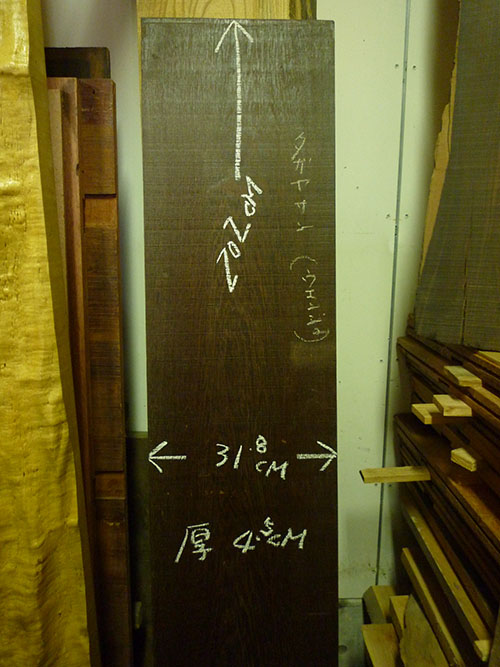 タガヤサン (ウエンジ)
31.8 CM
厚 4.5 CM